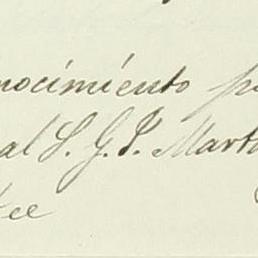 nocimiento p
al S. G. P. Marto
ee